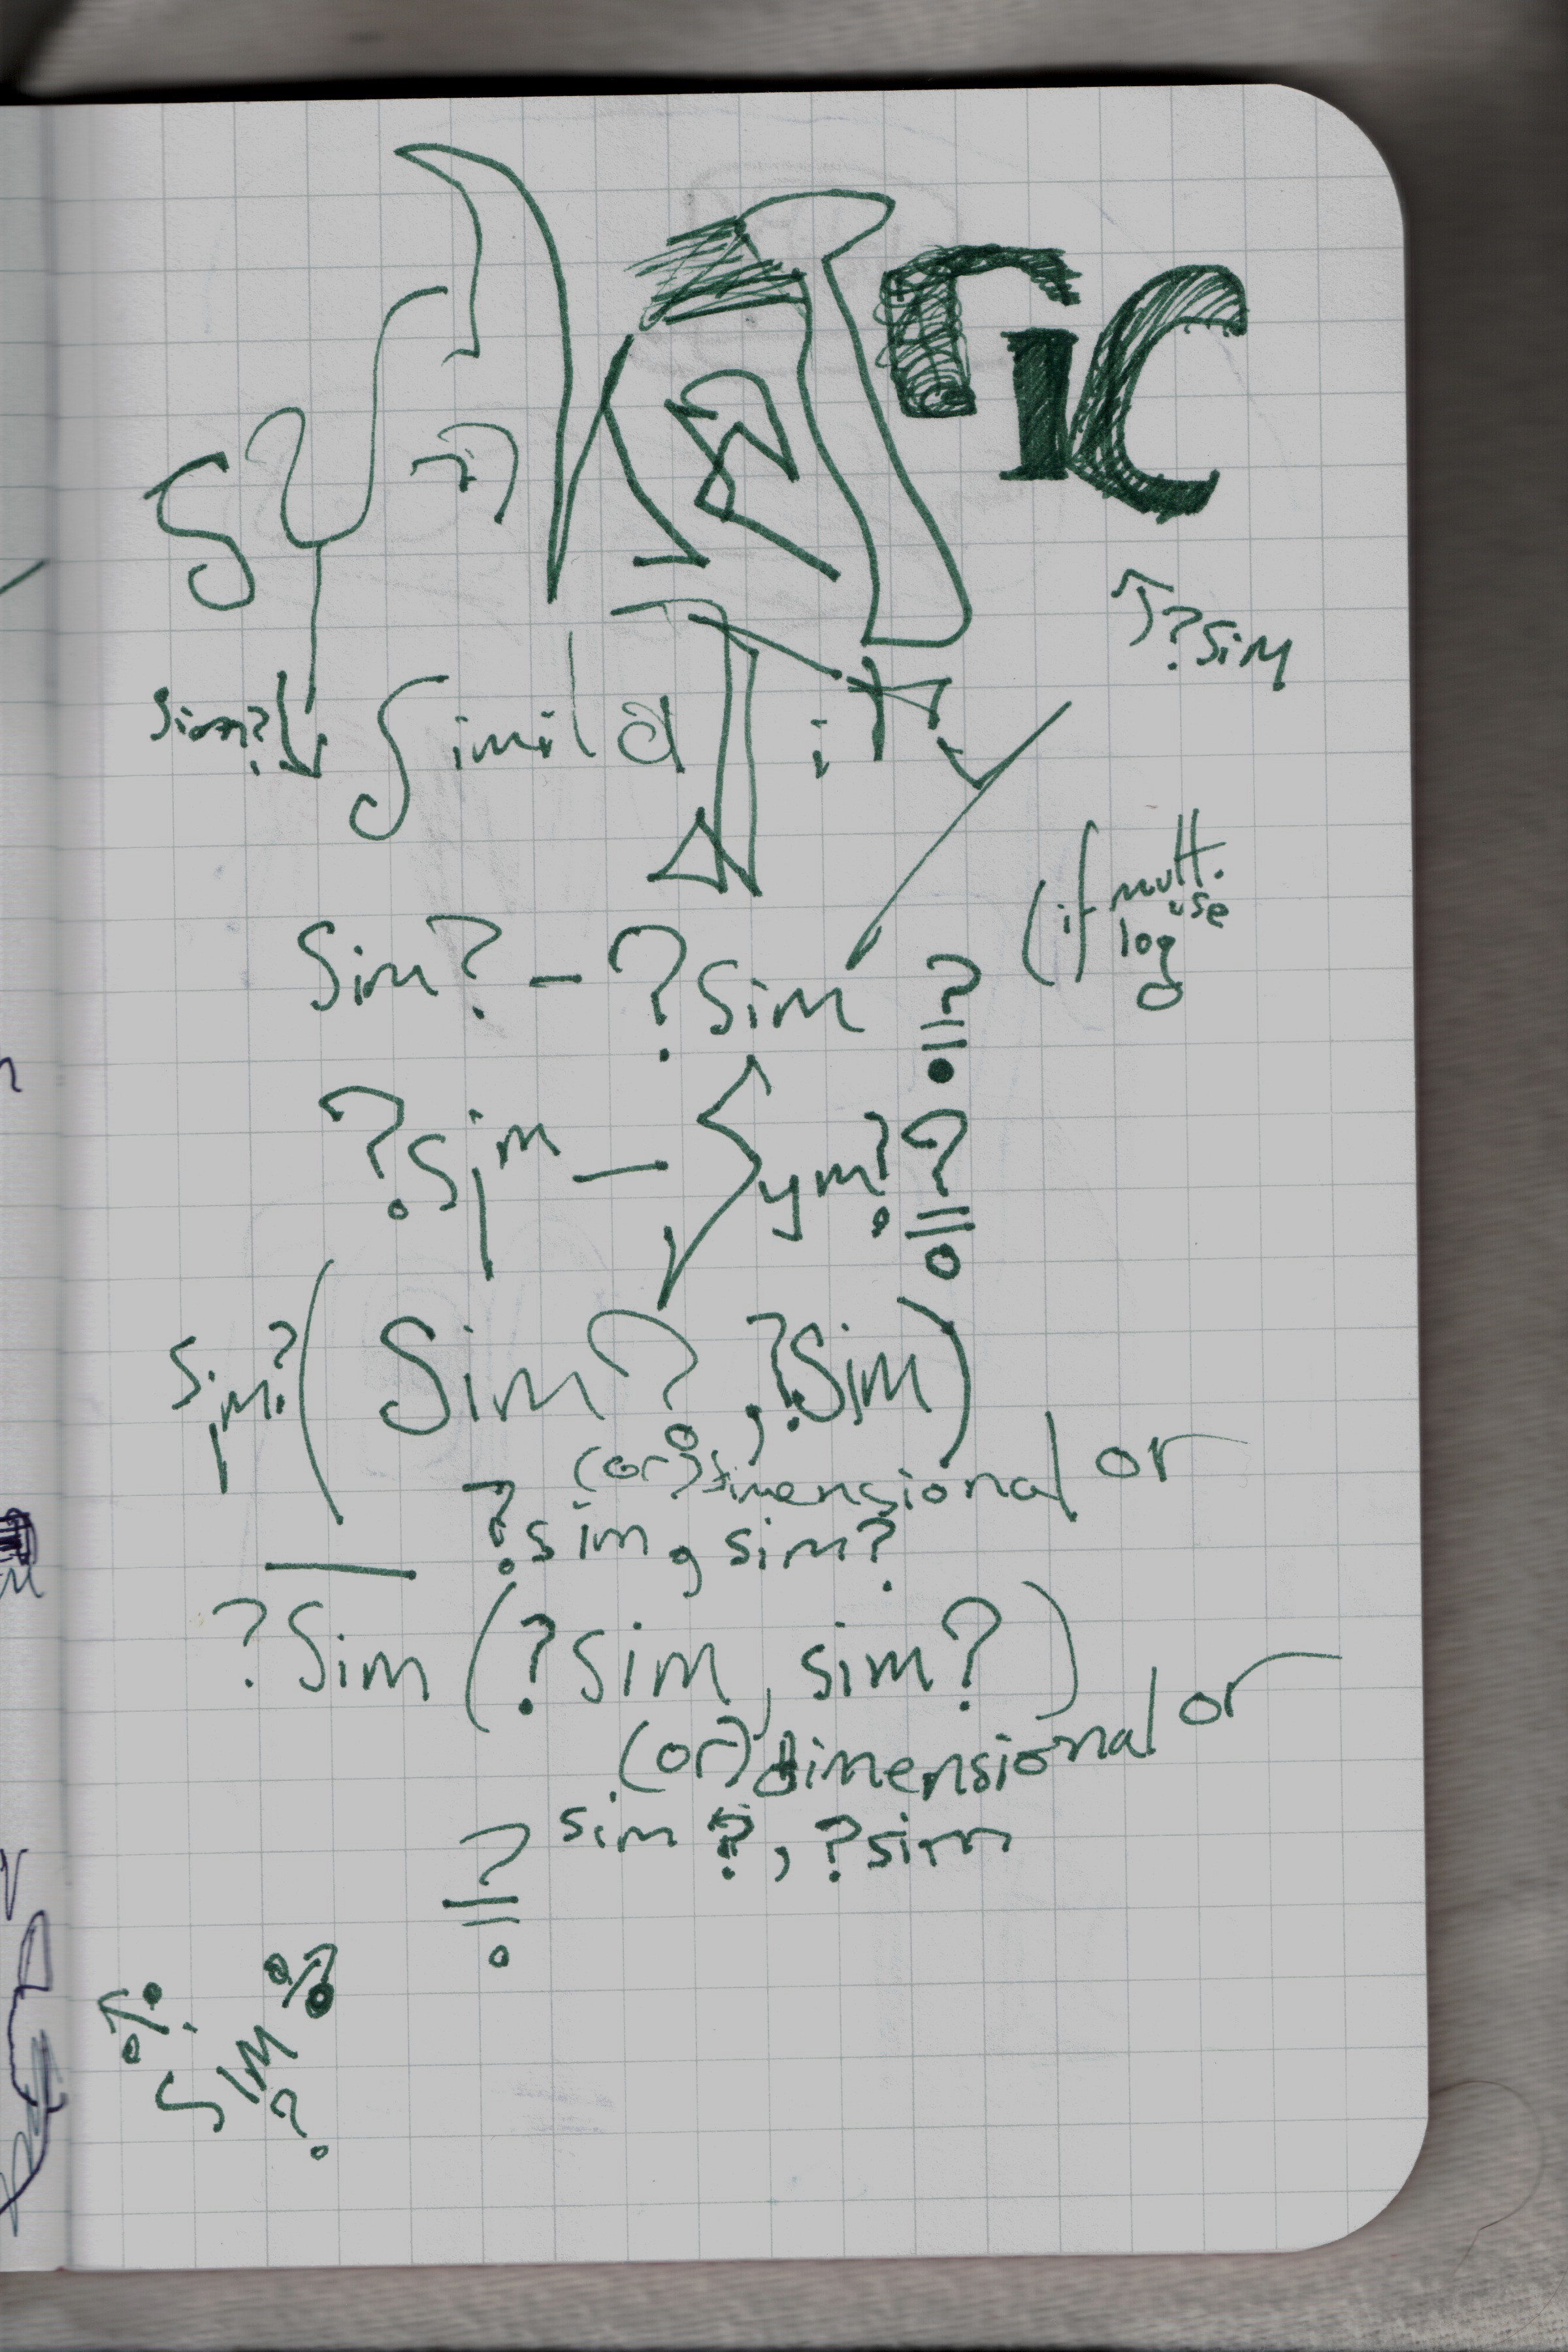 ?sim
sim?
Similarity
(if mult. use log
Sim? - ?Sim ?
?Sim - Sym? ?
Sim? (Sim?, ?Sim)
(or) dimensional or
?sim, sim?
?Sim (?sim, sim?)
(or) dimensional or
sim?, ?sim
?
% SIM %
?